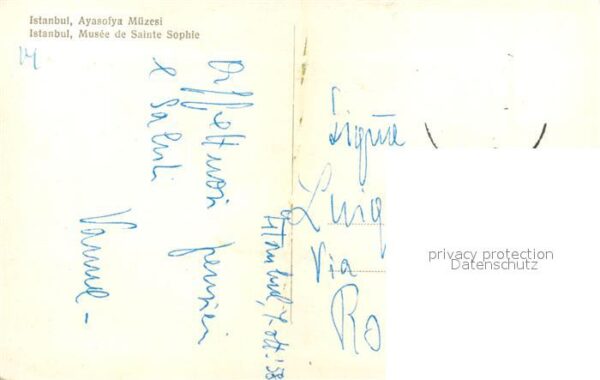 Istanbul, Ayasofya Müzesi
Istanbul, Musée de Sainte Sophie
14
Affettuosi pensieri
e saluti
Istanbul, 7-ott.'58
Via
Ro
privacy protection
Datenschutz